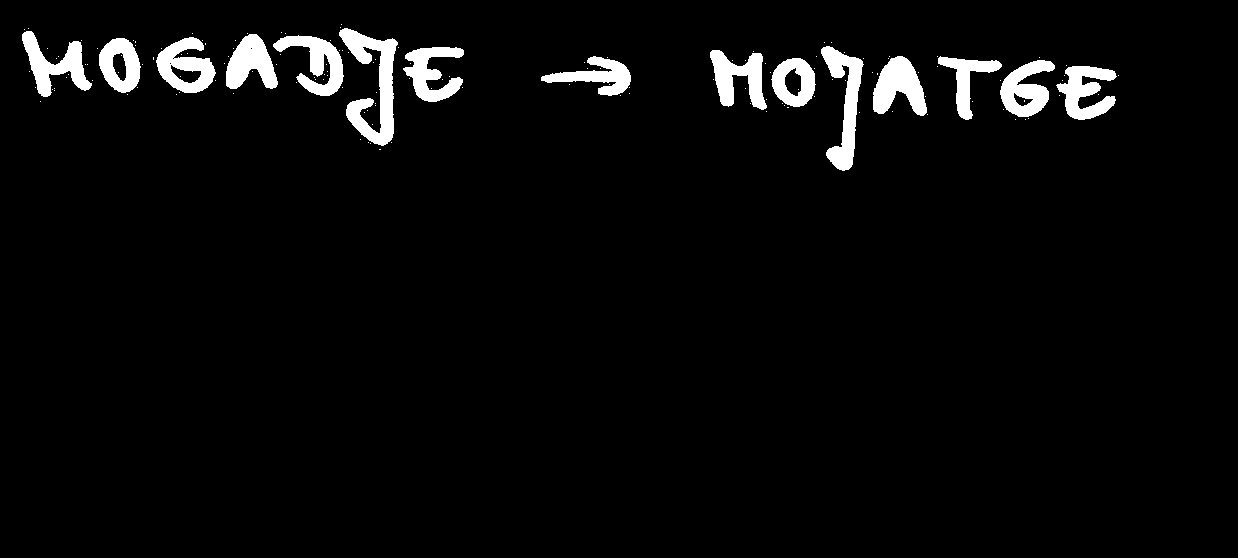 MOGADJE → MOJATGE